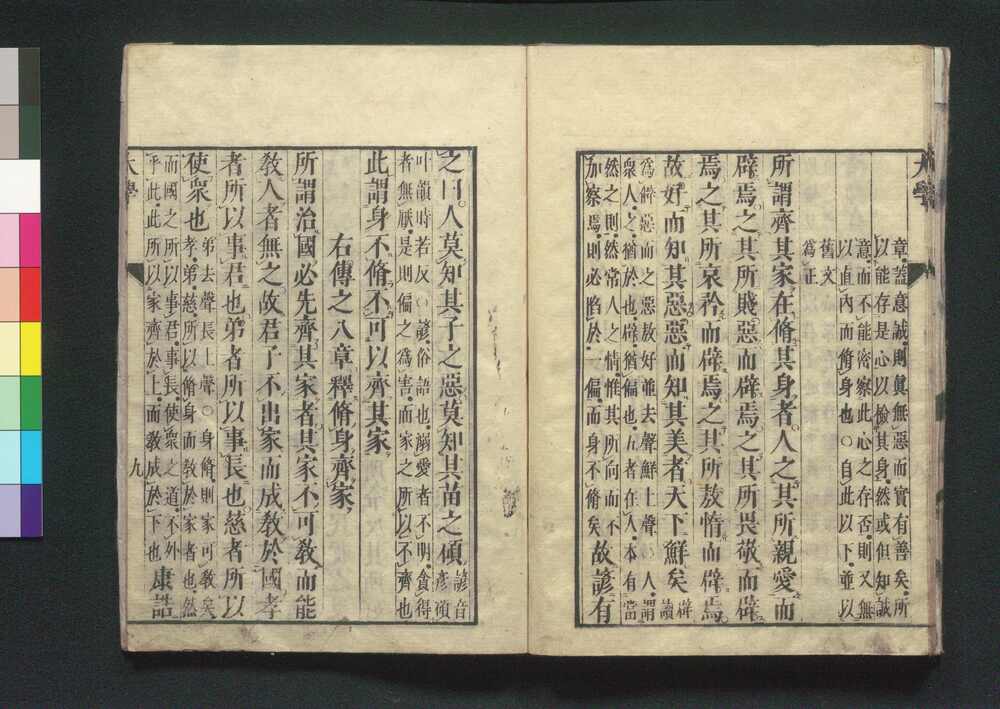 大學
章蓋意誠則眞無惡而實有善矣所
以能存是心以檢其身然或但知誠
意而不能密察此心之存否則又無
以直内而脩身也○自此以下並以
舊文
爲正
所謂齊其家在脩其身者人之其所親愛而
辟焉之其所賤惡而辟焉之其所畏敬而辟
焉之其所哀矜而辟焉之其所敖惰而辟焉
故好而知其惡惡而知其美者天下鮮矣辟讀
爲僻惡而之惡敖好並去聲鮮上聲○人謂
衆人之猶於也辟猶偏也五者在人本有當
然之則然常人之情惟其所向而不
加察焉則必陷於一偏而身不脩矣故諺有
之曰人莫知其子之惡莫知其苗之碩諺音彦碩
叶韻時若反○諺俗語也溺愛者不明貪得
者無厭是則偏之爲害而家之所以不齊也
此謂身不脩不可以齊其家
右傳之八章釋脩身齊家
所謂治國必先齊其家者其家不可敎而能
敎人者無之故君子不出家而成敎於國孝
者所以事君也弟者所以事長也慈者所以
使衆也弟去聲長上聲○身脩則家可敎矣
孝弟慈所以脩身而敎於家者也然
而國之所以事君事長使衆之道不外
乎此此所以家齊於上而敎成於下也康誥
大學 九